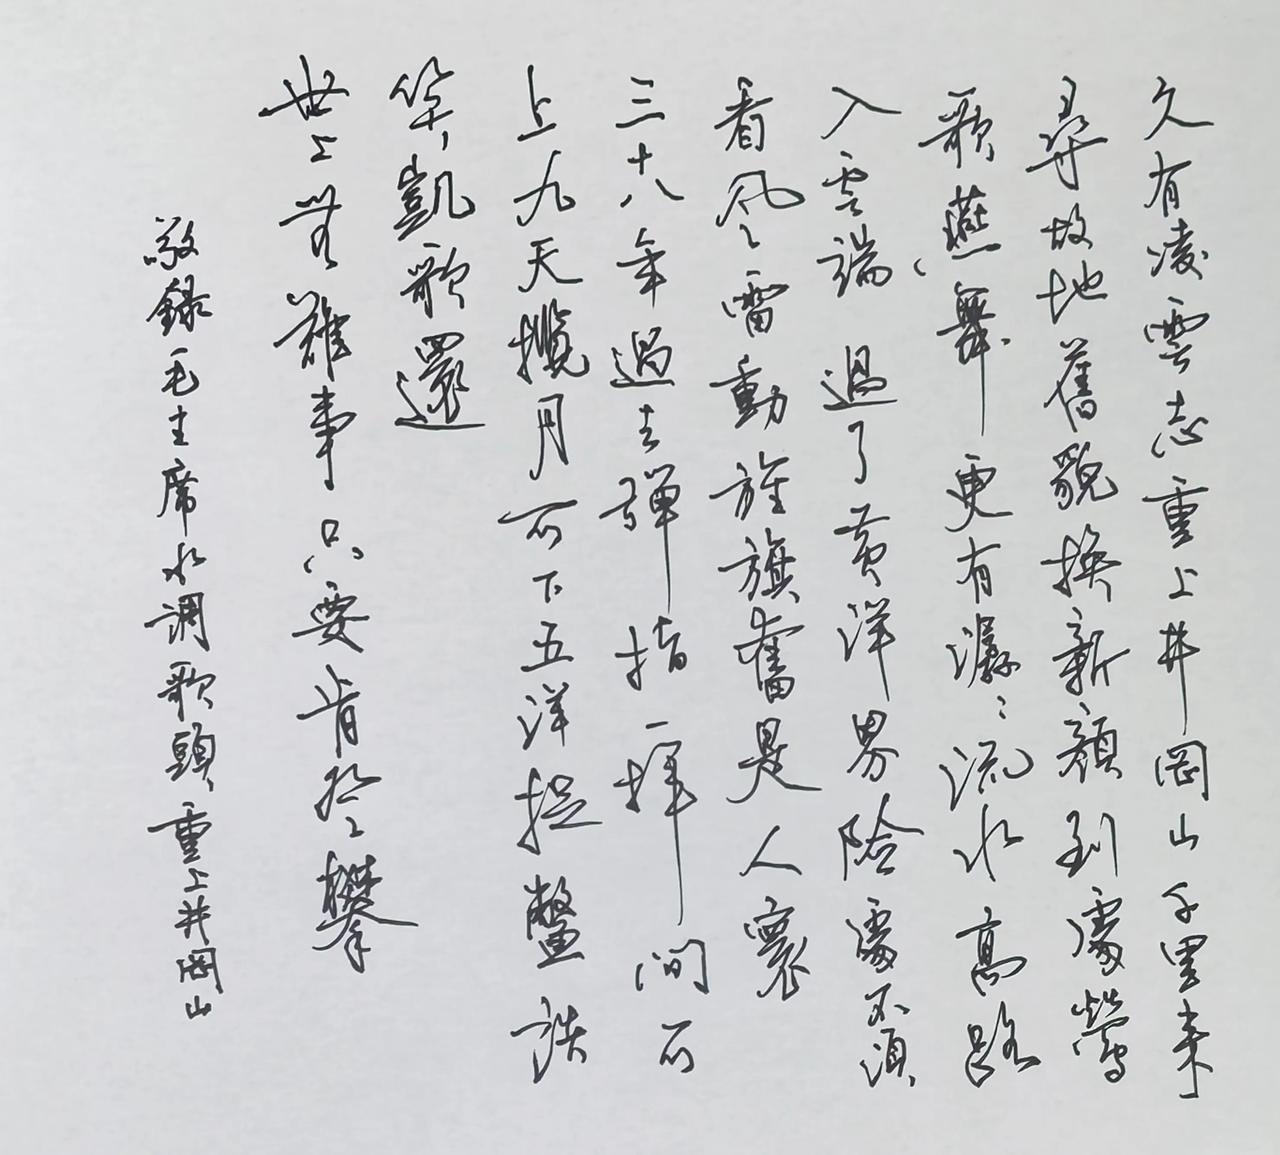 久有凌雲志重上井岡山千里来
尋故地舊貌換新顔到處鶯
歌燕舞更有潺〻流水高路
入雲端過了黄洋界險處不須
看風雷動旌旗奮是人寰
三十八年過去彈指一揮間可
上九天攬月可下五洋捉鱉談
笑凱歌還
世上無難事只要肯登攀
敬録毛主席水调歌頭重上井岡山